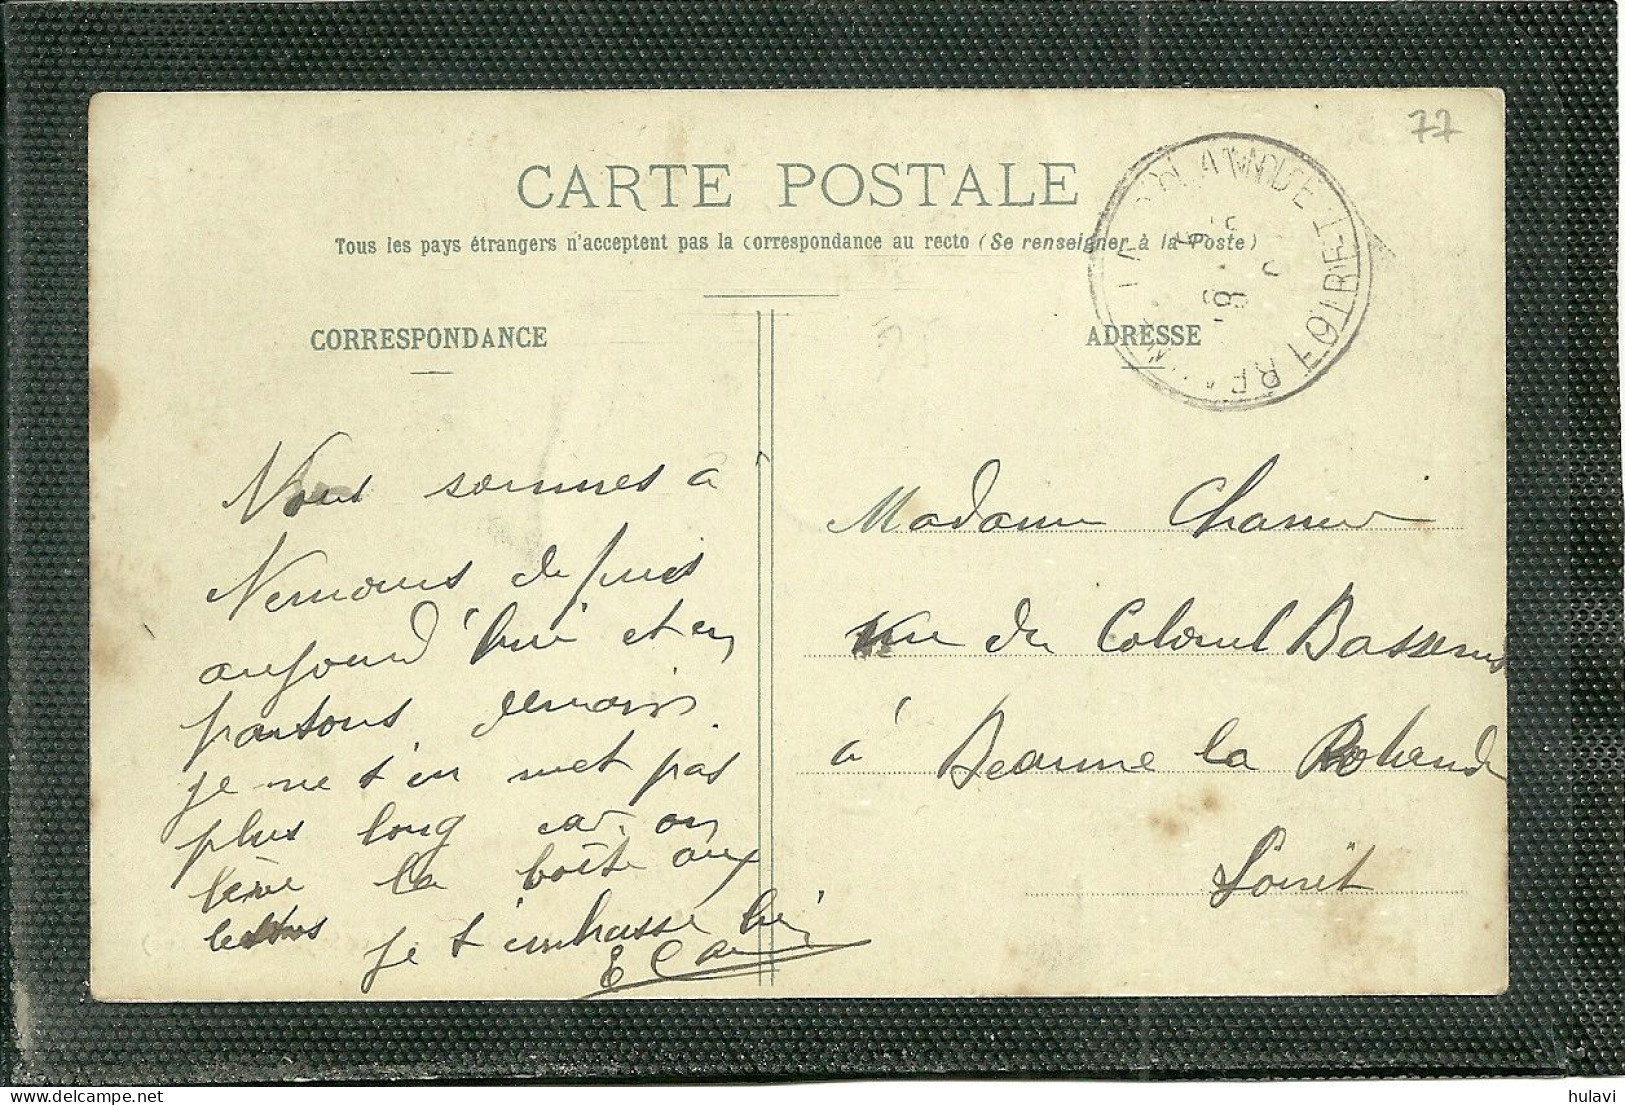 77
CARTE POSTALE
Tous les pays étrangers n'acceptent pas la correspondance au recto (Se renseigner à la Poste)
CORRESPONDANCE
ADRESSE
LOIRET
Nous sommes à
Nemours depuis
aujourd'hui et en
partons demain
je ne t'en met pas
plus long car on
lève la boîte aux
lettres
je t'embrasse bien
Madame
rue du Colonel
à Beaune la Rolande
Loiret
hulavi